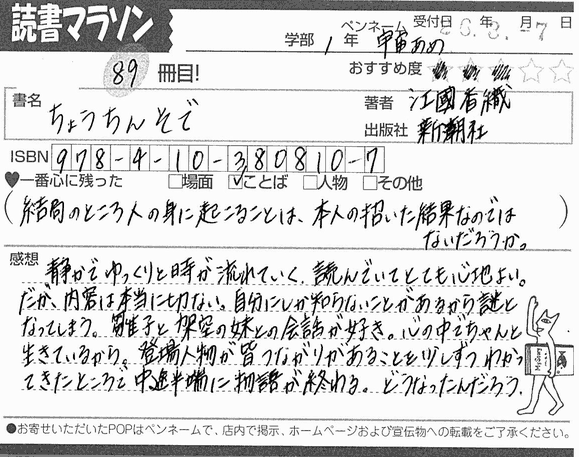 読書マラソン
学部 1年 ペンネーム 宇宙あめ 受付日 26年3月-7日
89 冊目!
おすすめ度 ★★★☆☆
書名 ちょうちんそで
著者 江國香織
出版社 新潮社
ISBN 978-4-10-380810-7
♥一番心に残った □場面 ☑ことば □人物 □その他
(結局のところ人の身に起こることは、本人の招いた結果なのでは
ないだろうか。)
感想
静かでゆっくりと時が流れていく、読んでいてとても心地よい。
だが、内容は本当に切ない。自分にしか知らないことがあるから謎と
なってしまう。雛子と架空の妹との会話が好き。心の中でちゃんと
生きているから。登場人物が皆つながりがあることを少しずつわかっ
てきたところで中途半端に物語が終わる。どうなったんだろう。
●お寄せいただいたPOPはペンネームで、店内で掲示、ホームページおよび宣伝物への転載をご了承ください。